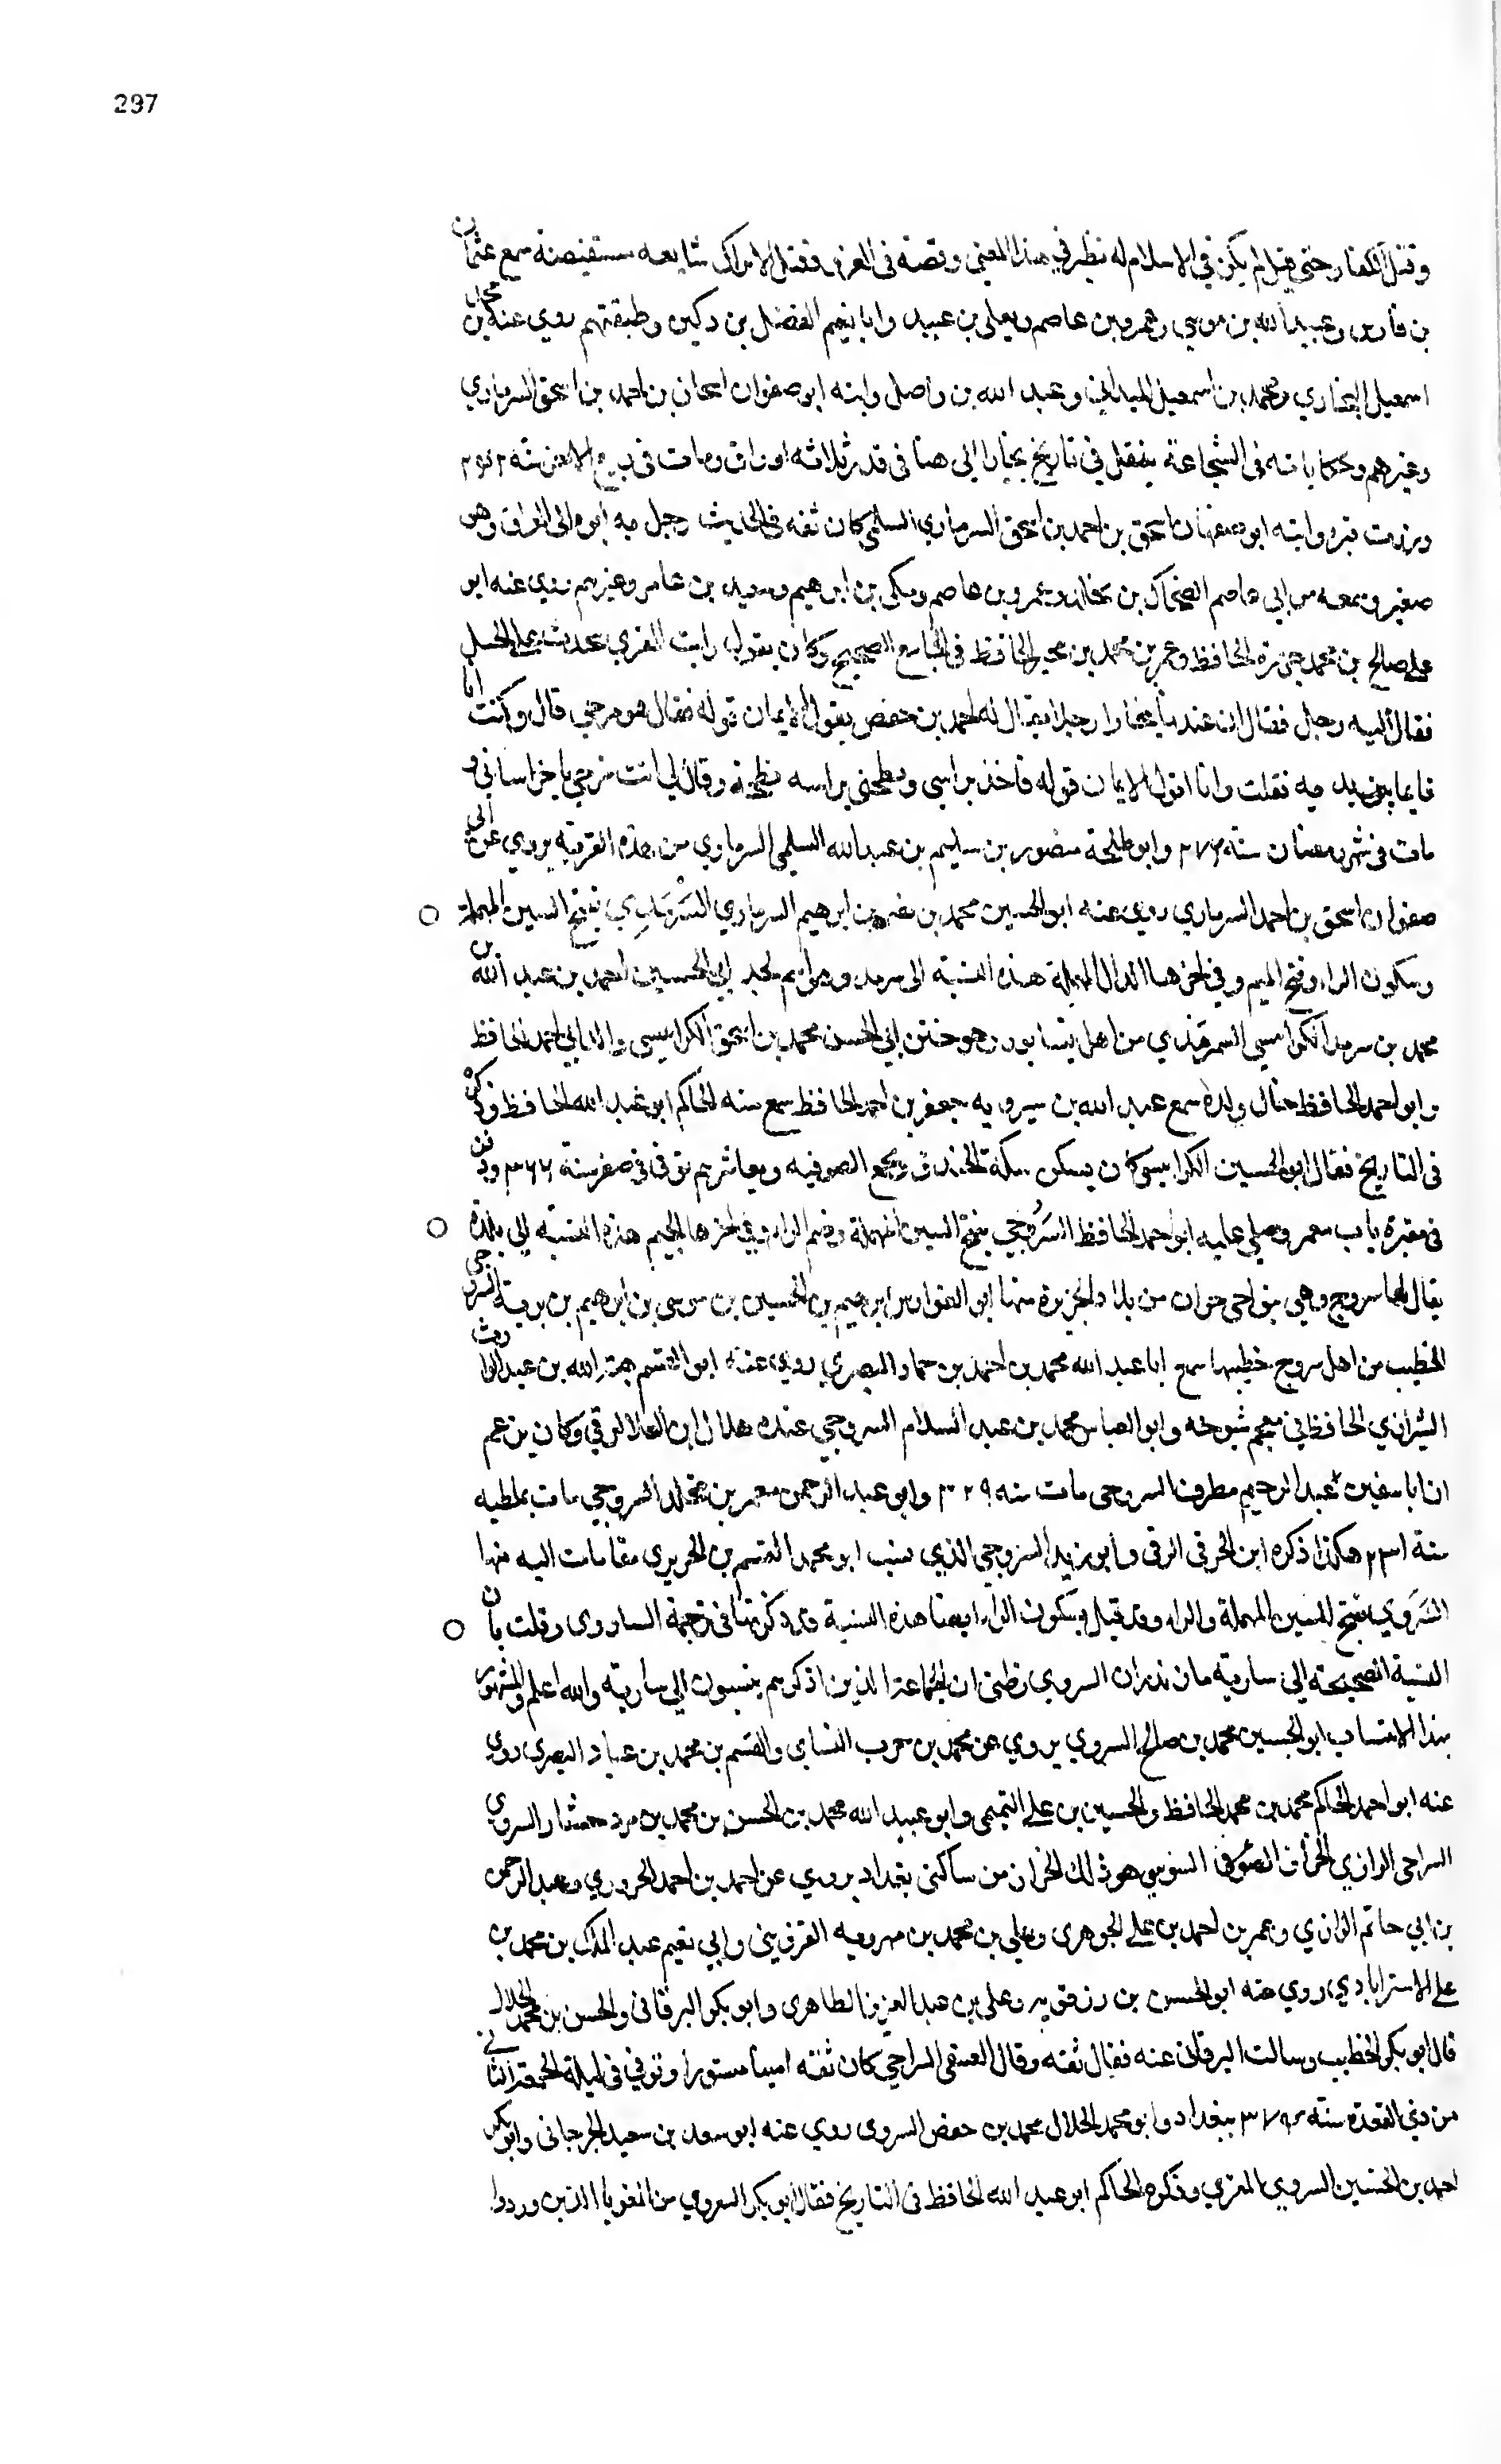 297
وقتل الكفار حتى قيل لم يكن في الاسلام له نظير في هذا المعنى وقصته في الغزو وقتل الاتراك شايعه مستفيضة سمع عثمان
بن فارس وعبيد الله بن موسى وعمرو بن عاصم ويعلى بن عبيد وابا نعيم الفضل بن دكين وطبقتهم روى عنه محمد بن
اسمعيل البخاري ومحمد بن اسمعيل الميداني وعبد الله بن واصل وابنه ابو صفوان اسحاق بن احمد بن اسحق السرماري
وغيرهم وحكاياته في الشجاعة بفضل في تاريخ بخارا الى هنا في قدر ثلاثه اوراق ومات في ربيع الاخر سنه ٢٤٢
وزرت قبره وابنه ابو صفوان اسحق بن احمد بن اسحق السرماري السلمي كان ثقه في الحديث رحل به ابوه الى العراق وهو
صغير وسمعه من ابي عاصم الضحاك بن مخلد وعمرو بن عاصم ومكي بن ابرهيم وسويد بن عامر وغيرهم روى عنه ابو
علي صالح بن محمد جزرة الحافظ وعمر بن محمد بن بجير الحافظ في الجامع الصحيح وكان يقول رايت المقري بحديث
فقال اليه رجل فقال ان عندنا ببخارا رجلا يقال له احمد بن حفص يقول الايمان قوله فقال هو مرجئ قال وكنت انا
قايما بين يديه فقلت وانا اقول الايمان قوله فاخذ براسي ونطحني براسه نطحة وقال لي انت مرجئ يا خراساني و
مات في شهر رمضان سنة ٢٧٦ وابو طلحة منصور بن سليم بن عبد الله السلمي السرماري من هذه القرية يروي عن ابي
صفوان اسحق بن احمد السرماري روى عنه ابو الحسين محمد بن نصر بن ابرهيم السرماري السَرْمَدي بفتح السين المهملة
وسكون الراء وفتح الميم وفي اخرها الدال المهملة هذه النسبة الى سرمد وهو اسم لجد ابي الحسين احمد بن عبد الله بن
محمد بن سرمد الكرابيسي السمرقندي من اهل نيسابور وهو ختن ابي الحسن محمد بن اسحق الكرابيسي والد ابي احمد الحافظ
وابو احمد الحافظ خال ولده سمع عبد الله بن سيرويه جعفر بن احمد الحافظ سمع منه الحاكم ابو عبد الله الحافظ وذكره
في التاريخ فقال ابو الحسين الكرابيسي كان يسكن سكة الخندق ويجمع الصوفيه ويعاشرهم توفي في صفر سنة ٣٦٦ ودفن
في مقبرة باب معمر وصلى عليه ابو احمد الحافظ السَرُوجي بفتح السين المهملة وضم الراء وفي اخرها الجيم هذه النسبه الى بلدة
يقال لها سروج وهي بنواحي حران من بلاد الجزيرة منها ابو الفوارس ابرهيم بن الحسين بن موسى بن ابرهيم بن برية السروجي
الخطيب من اهل سروج خطيبها سمع ابا عبد الله محمد بن احمد بن حماد البصري روى عنه ابو القسم هبة الله بن عبد الوارث
الشيرازي الحافظ في معجم شيوخه وابو العباس محمد بن عبد السلام السروجي عنده هلال بن العلا الرقي وكان يزعم
ان ابا سفين عبد الرحيم مطرف السروجي مات سنه ٢٢٩ وابو عبد الرحمن معمر بن مخلد السروجي مات بملطيه
سنة ٢٣١ هكذا ذكره ابن الحرفي الرقي وابو زيد السروجي الذي نسب ابو محمد القسم بن الحريري مقامات اليه منها
السَرَوي بفتح السين المهملة والراء وقد قيل بسكون الراء ايضا هذه النسبة قد ذكرتها في ترجمة الساروي وقلت بان
النسبة الصحيحة الى سارية مازندران السروي وظني ان الجماعة الذين اذكرهم ينسبون الى سارية والله اعلم والمشهور
بهذا الانتساب ابو الحسين محمد بن صالح السروي يروي عن محمد بن حرب النسابي والقسم بن محمد بن عباد البصري روى
عنه ابو احمد الحاكم محمد بن محمد الحافظ والحسين بن علي التميمي وابو عبيد الله محمد بن الحسن بن محمد بن السروي
السراجي الرازي السروي هو من ساكني بغداد يروي عن احمد بن احمد الحروري وعبد الرحمن
بن ابي حاتم الرازي وعمر بن احمد بن علي الجوهري وعلي بن محمد بن مهرويه القزويني وابي نعيم عبد الملك بن محمد بن
علي الاسترابادي روى عنه ابو الحسن بن رزقويه وعلي بن عبد العزيز الطاهري وابو بكر البرقاني والحسن بن محمد الخلال
قال ابو بكر الخطيب وسالت البرقاني عنه فقال ثقه وقال العتيقي السراجي كان ثقه امينا مستورا وتوفي في ليلة الجمعة الثاني
من ذي القعدة سنة ٣٧٩ ببغداد وابو محمد الخلال محمد بن حفص السروي روى عنه ابو سعد بن سعيد الجرجاني وابو بكر
احمد بن الحسين السروي المقري وذكره الحاكم ابو عبد الله الحافظ في التاريخ فقال ابو بكر السروي من الغربا الذين وردوا